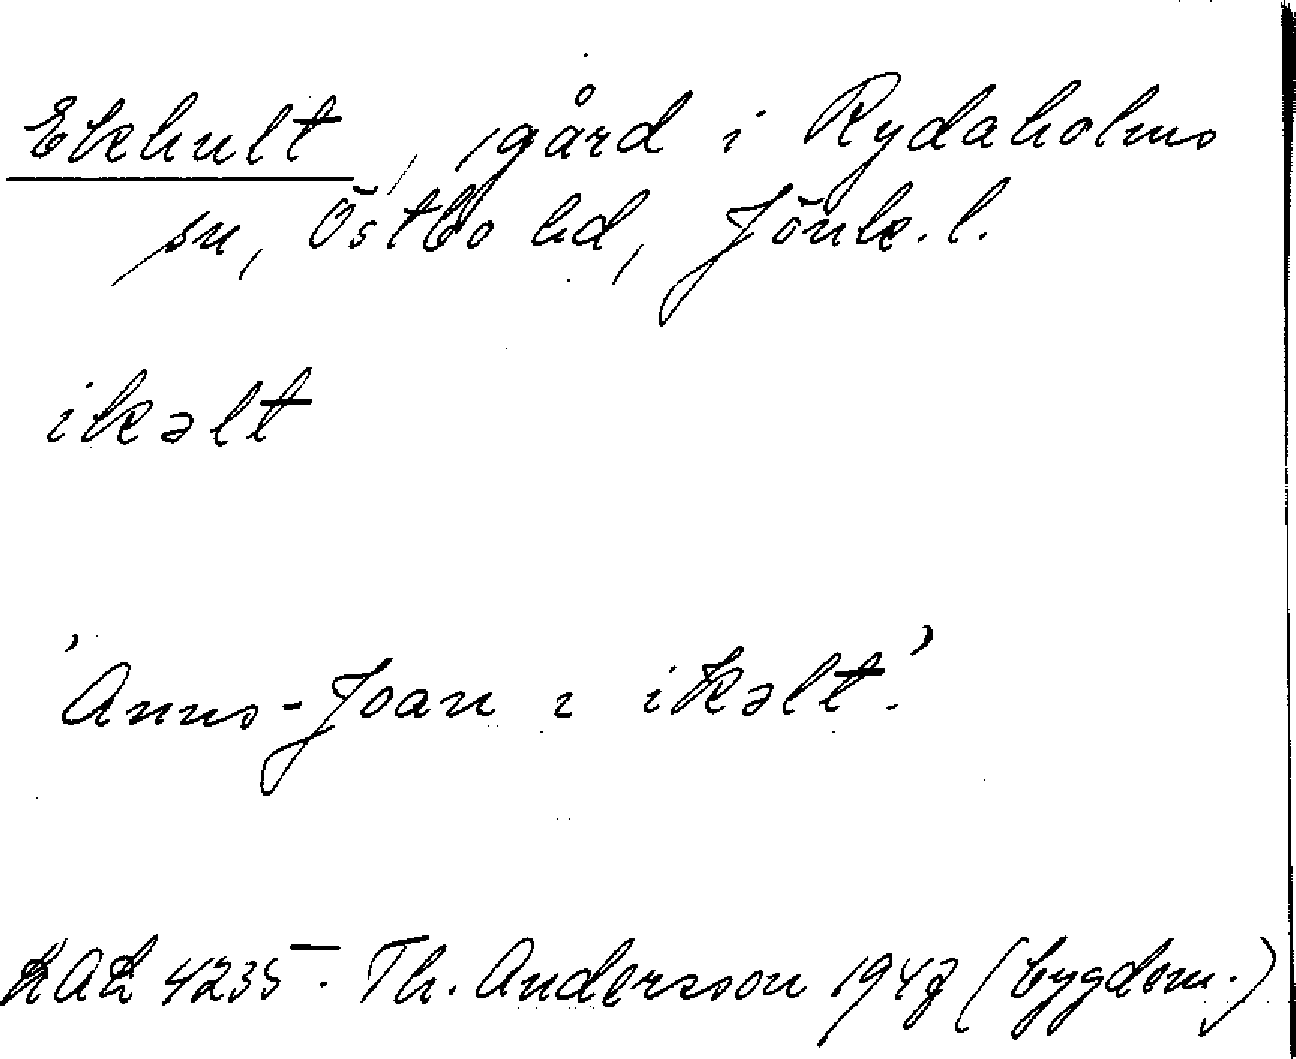 Ekhult, gård i Rydaholms
sn, Östbo hd, Jönk. l.
ikəlt
'Anns-Joan i ikəlt.'
4235. Th. Andersson 1947 (bygdem.)